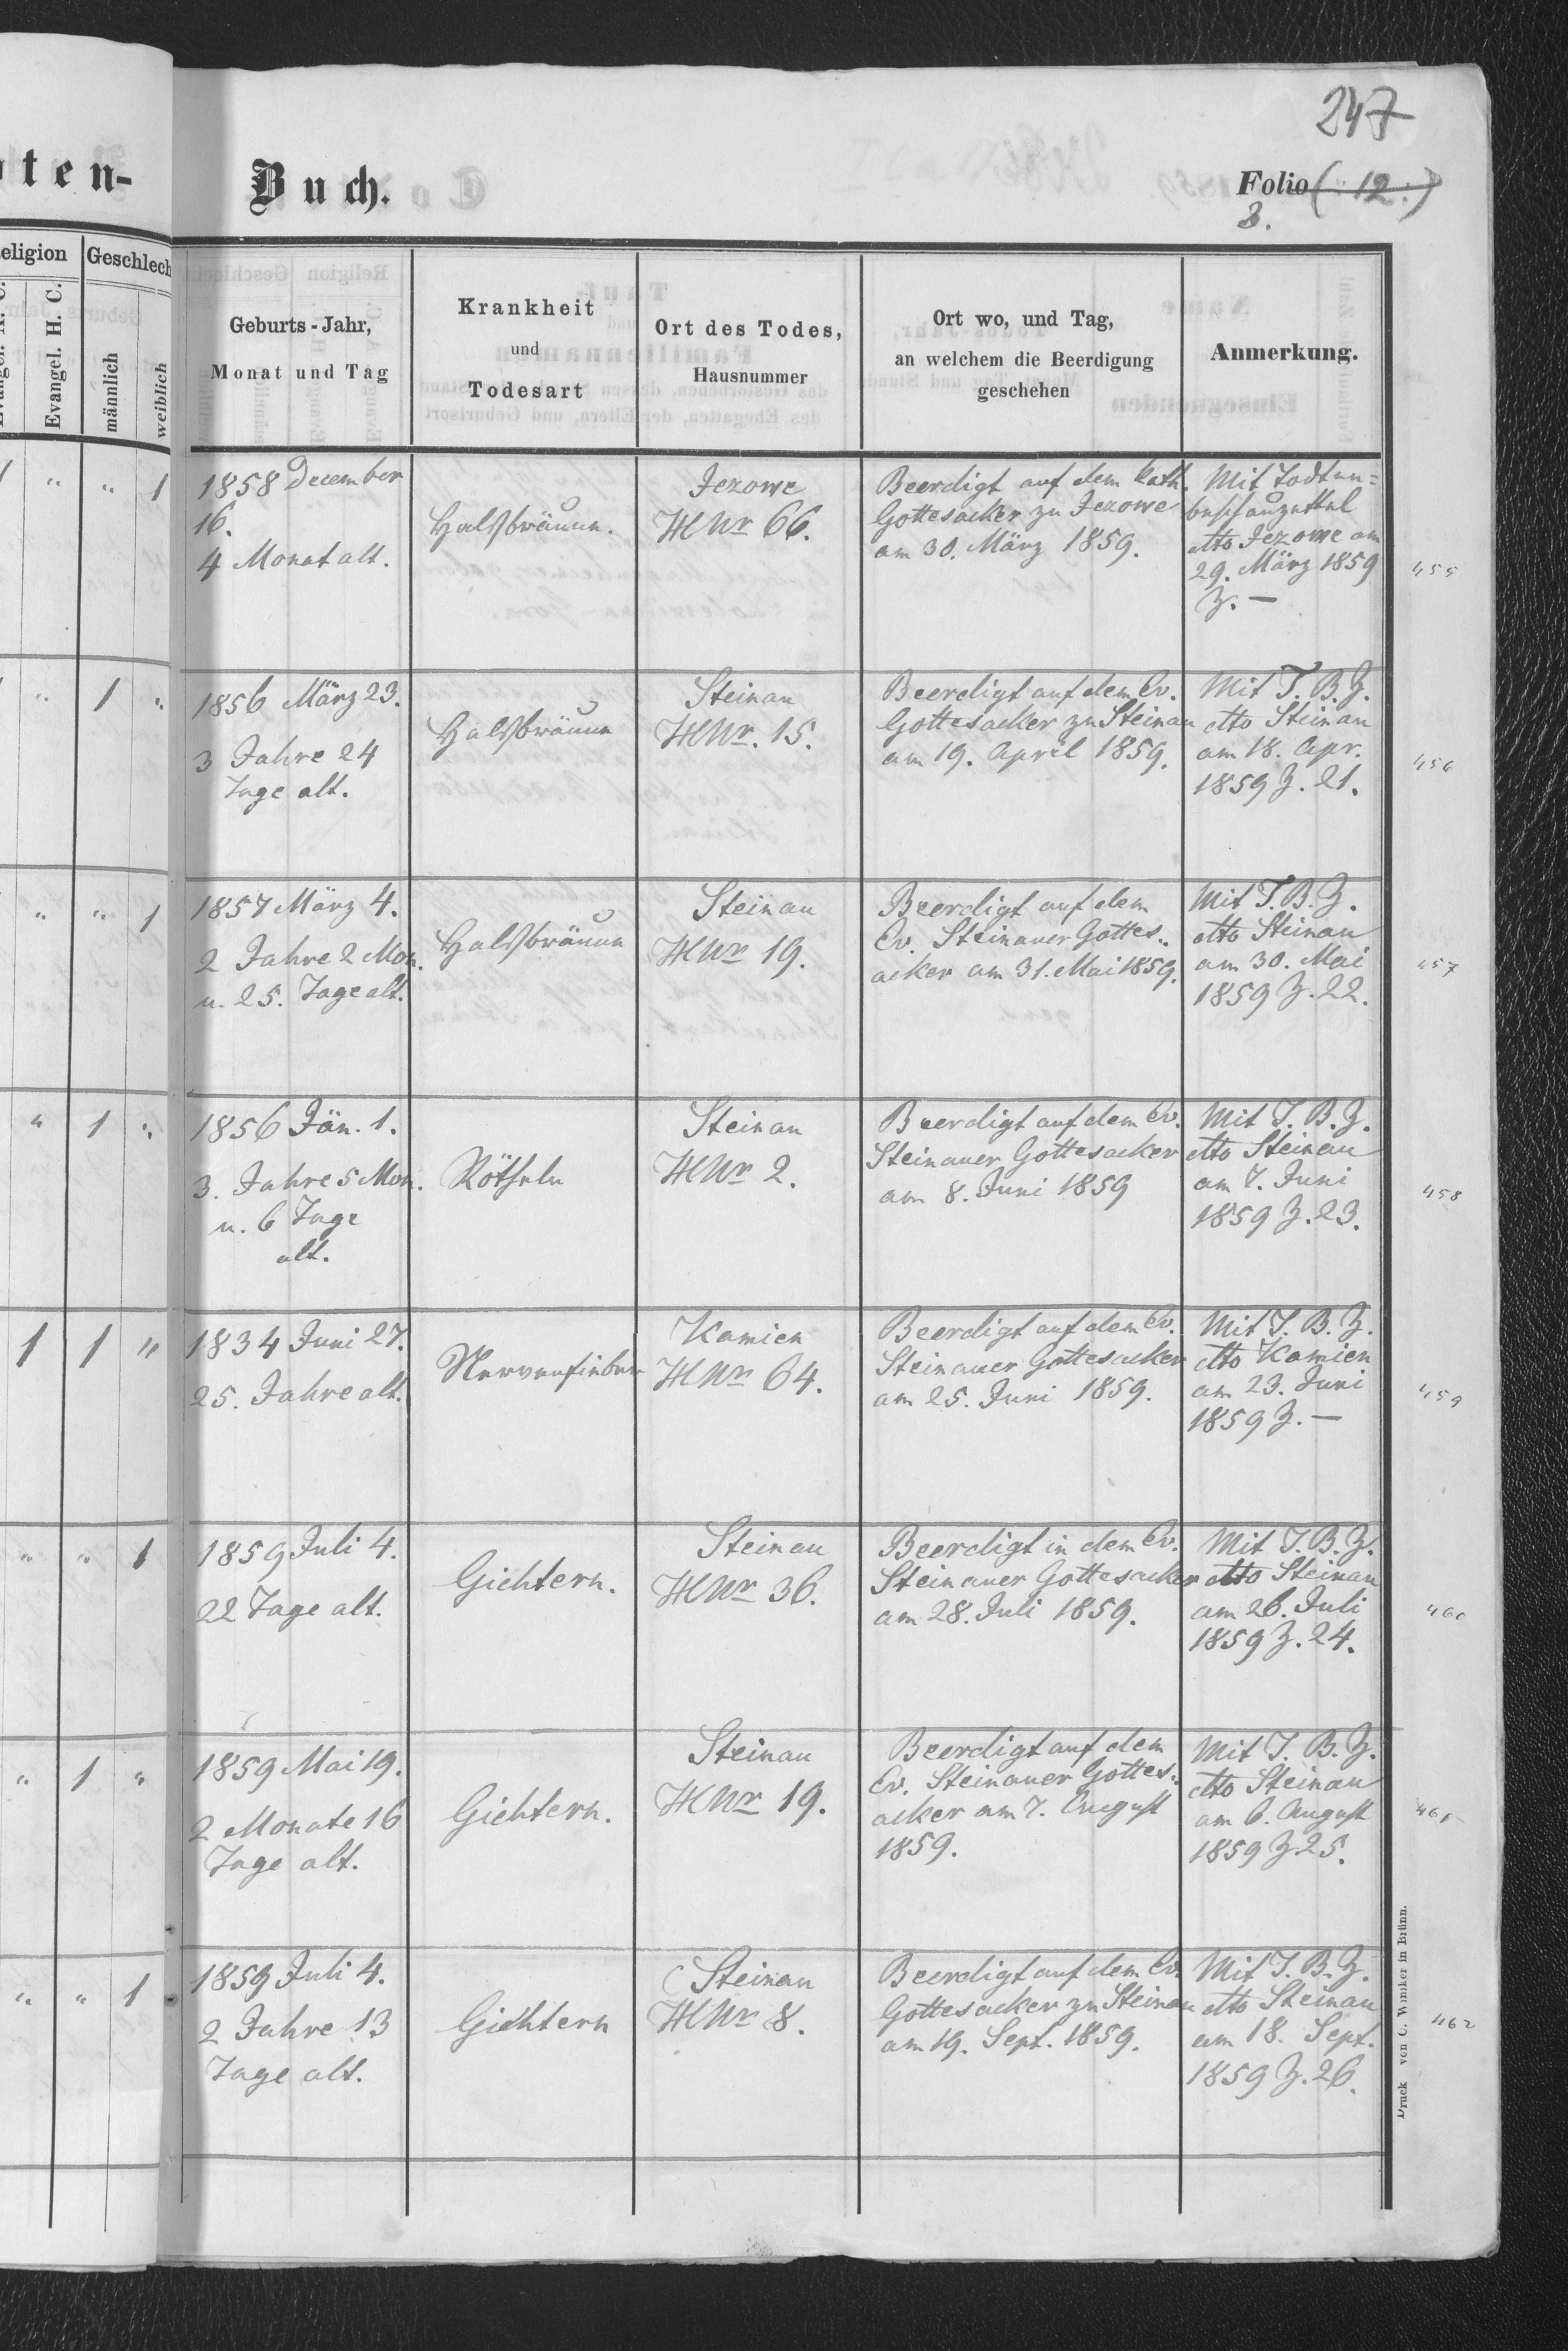 247
oten-
Buch.
Folio (12.)
3.
eligion
Geschlech
Evangel. A. C.
Evangel. H. C.
männlich
weiblich
Geburts-Jahr,
Monat und Tag
Krankheit
und
Todesart
Ort des Todes,
Hausnummer
Ort wo, und Tag,
an welchem die Beerdigung
geschehen
Anmerkung.
1 " " 1
1858 December
16.
4 Monat alt.
Halsbräune.
Jezowe
HNr 66.
Beerdigt auf dem kath.
Gottesacker zu Jezowe
am 30. März 1859.
Mit Todten=
beschauzettel
dto Jezowe am
29. März 1859
Z. —
455
" 1 "
1856 März 23.
3 Jahre 24
Tage alt.
Halsbräune
Steinau
HNr. 15.
Beerdigt auf dem Ev.
Gottesacker zu Steinau
am 19. April 1859.
Mit T. B. Z.
dto Steinau
am 18. Apr.
1859 Z. 21.
456
" " 1
1857 März 4.
2 Jahre 2 Mon.
u. 25. Tage alt.
Halsbräune
Steinau
HNr 19.
Beerdigt auf dem
Ev. Steinauer Gottes=
acker am 31. Mai 1859.
Mit T. B. Z.
dto Steinau
am 30. Mai
1859 Z. 22.
457
" 1 "
1856 Jän. 1.
3. Jahre 5 Mon.
u. 6 Tage
alt.
Rötheln
Steinau
HNr 2.
Beerdigt auf dem Ev.
Steinauer Gottesacker
am 8. Juni 1859
Mit T. B. Z.
dto Steinau
am 7. Juni
1859 Z. 23.
458
1 1 "
1834 Juni 27.
25. Jahre alt.
Nervenfieber
Kamien
HNr 64.
Beerdigt auf dem Ev.
Steinauer Gottesacker
am 25. Juni 1859.
Mit T. B. Z.
dto Kamien
am 23. Juni
1859 Z. —
459
" " 1
1859 Juli 4.
22 Tage alt.
Gichtern.
Steinau
HNr 36.
Beerdigt in dem Ev.
Steinauer Gottesacker
am 28. Juli 1859.
Mit T. B. Z.
dto Steinau
am 26. Juli
1859 Z. 24.
460
" 1 "
1859 Mai 19.
2 Monate 16
Tage alt.
Gichtern.
Steinau
HNr 19.
Beerdigt auf dem
Ev. Steinauer Gottes=
acker am 7. August
1859.
Mit T. B. Z.
dto Steinau
am 6. August
1859 Z 25.
461
" " 1
1859 Juli 4.
2 Jahre 13
Tage alt.
Gichtern
Steinau
HNr 8.
Beerdigt auf dem Ev.
Gottesacker zu Steinau
am 19. Sept. 1859.
Mit T. B. Z.
dto Steinau
am 18. Sept.
1859 Z. 26.
462
Druck von C. Winiker in Brünn.